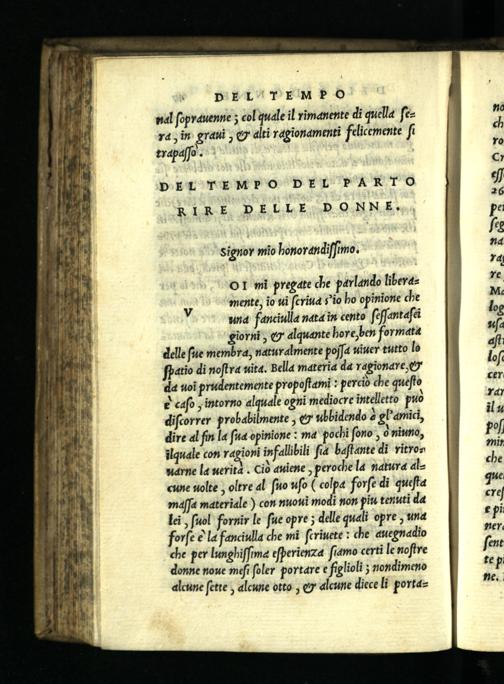 DEL TEMPO
nal soprauenne; col quale il rimanente di quella se=
ra, in graui, & alti ragionamenti felicemente si
trapassò.
DEL TEMPO DEL PARTO
RIRE DELLE DONNE.
Signor mio honorandissimo.
V OI mi pregate che parlando libera=
mente, io ui scriua s'io ho opinione che
una fanciulla nata in cento sessantasei
giorni, & alquante hore, ben formata
delle sue membra, naturalmente possa uiuer tutto lo
spatio di nostra uita. Bella materia da ragionare, &
da uoi prudentemente propostami: perciò che questo
è caso, intorno alquale ogni mediocre intelletto può
discorrer probabilmente, & ubbidendo à gl'amici,
dire al fin la sua opinione: ma pochi sono, ò niuno,
ilquale con ragioni infallibili sia bastante di ritro=
uarne la uerità. Ciò auiene, peroche la natura al=
cune uolte, oltre al suo uso (colpa forse di questa
massa materiale) con nuoui modi non piu tenuti da
lei, suol fornir le sue opre; delle quali opre, una
forse è la fanciulla che mi scriuete: che auegnadio
che per lunghissima esperienza siamo certi le nostre
donne noue mesi soler portare e figlioli; nondimeno
alcune sette, alcune otto, & alcune diece li porta=